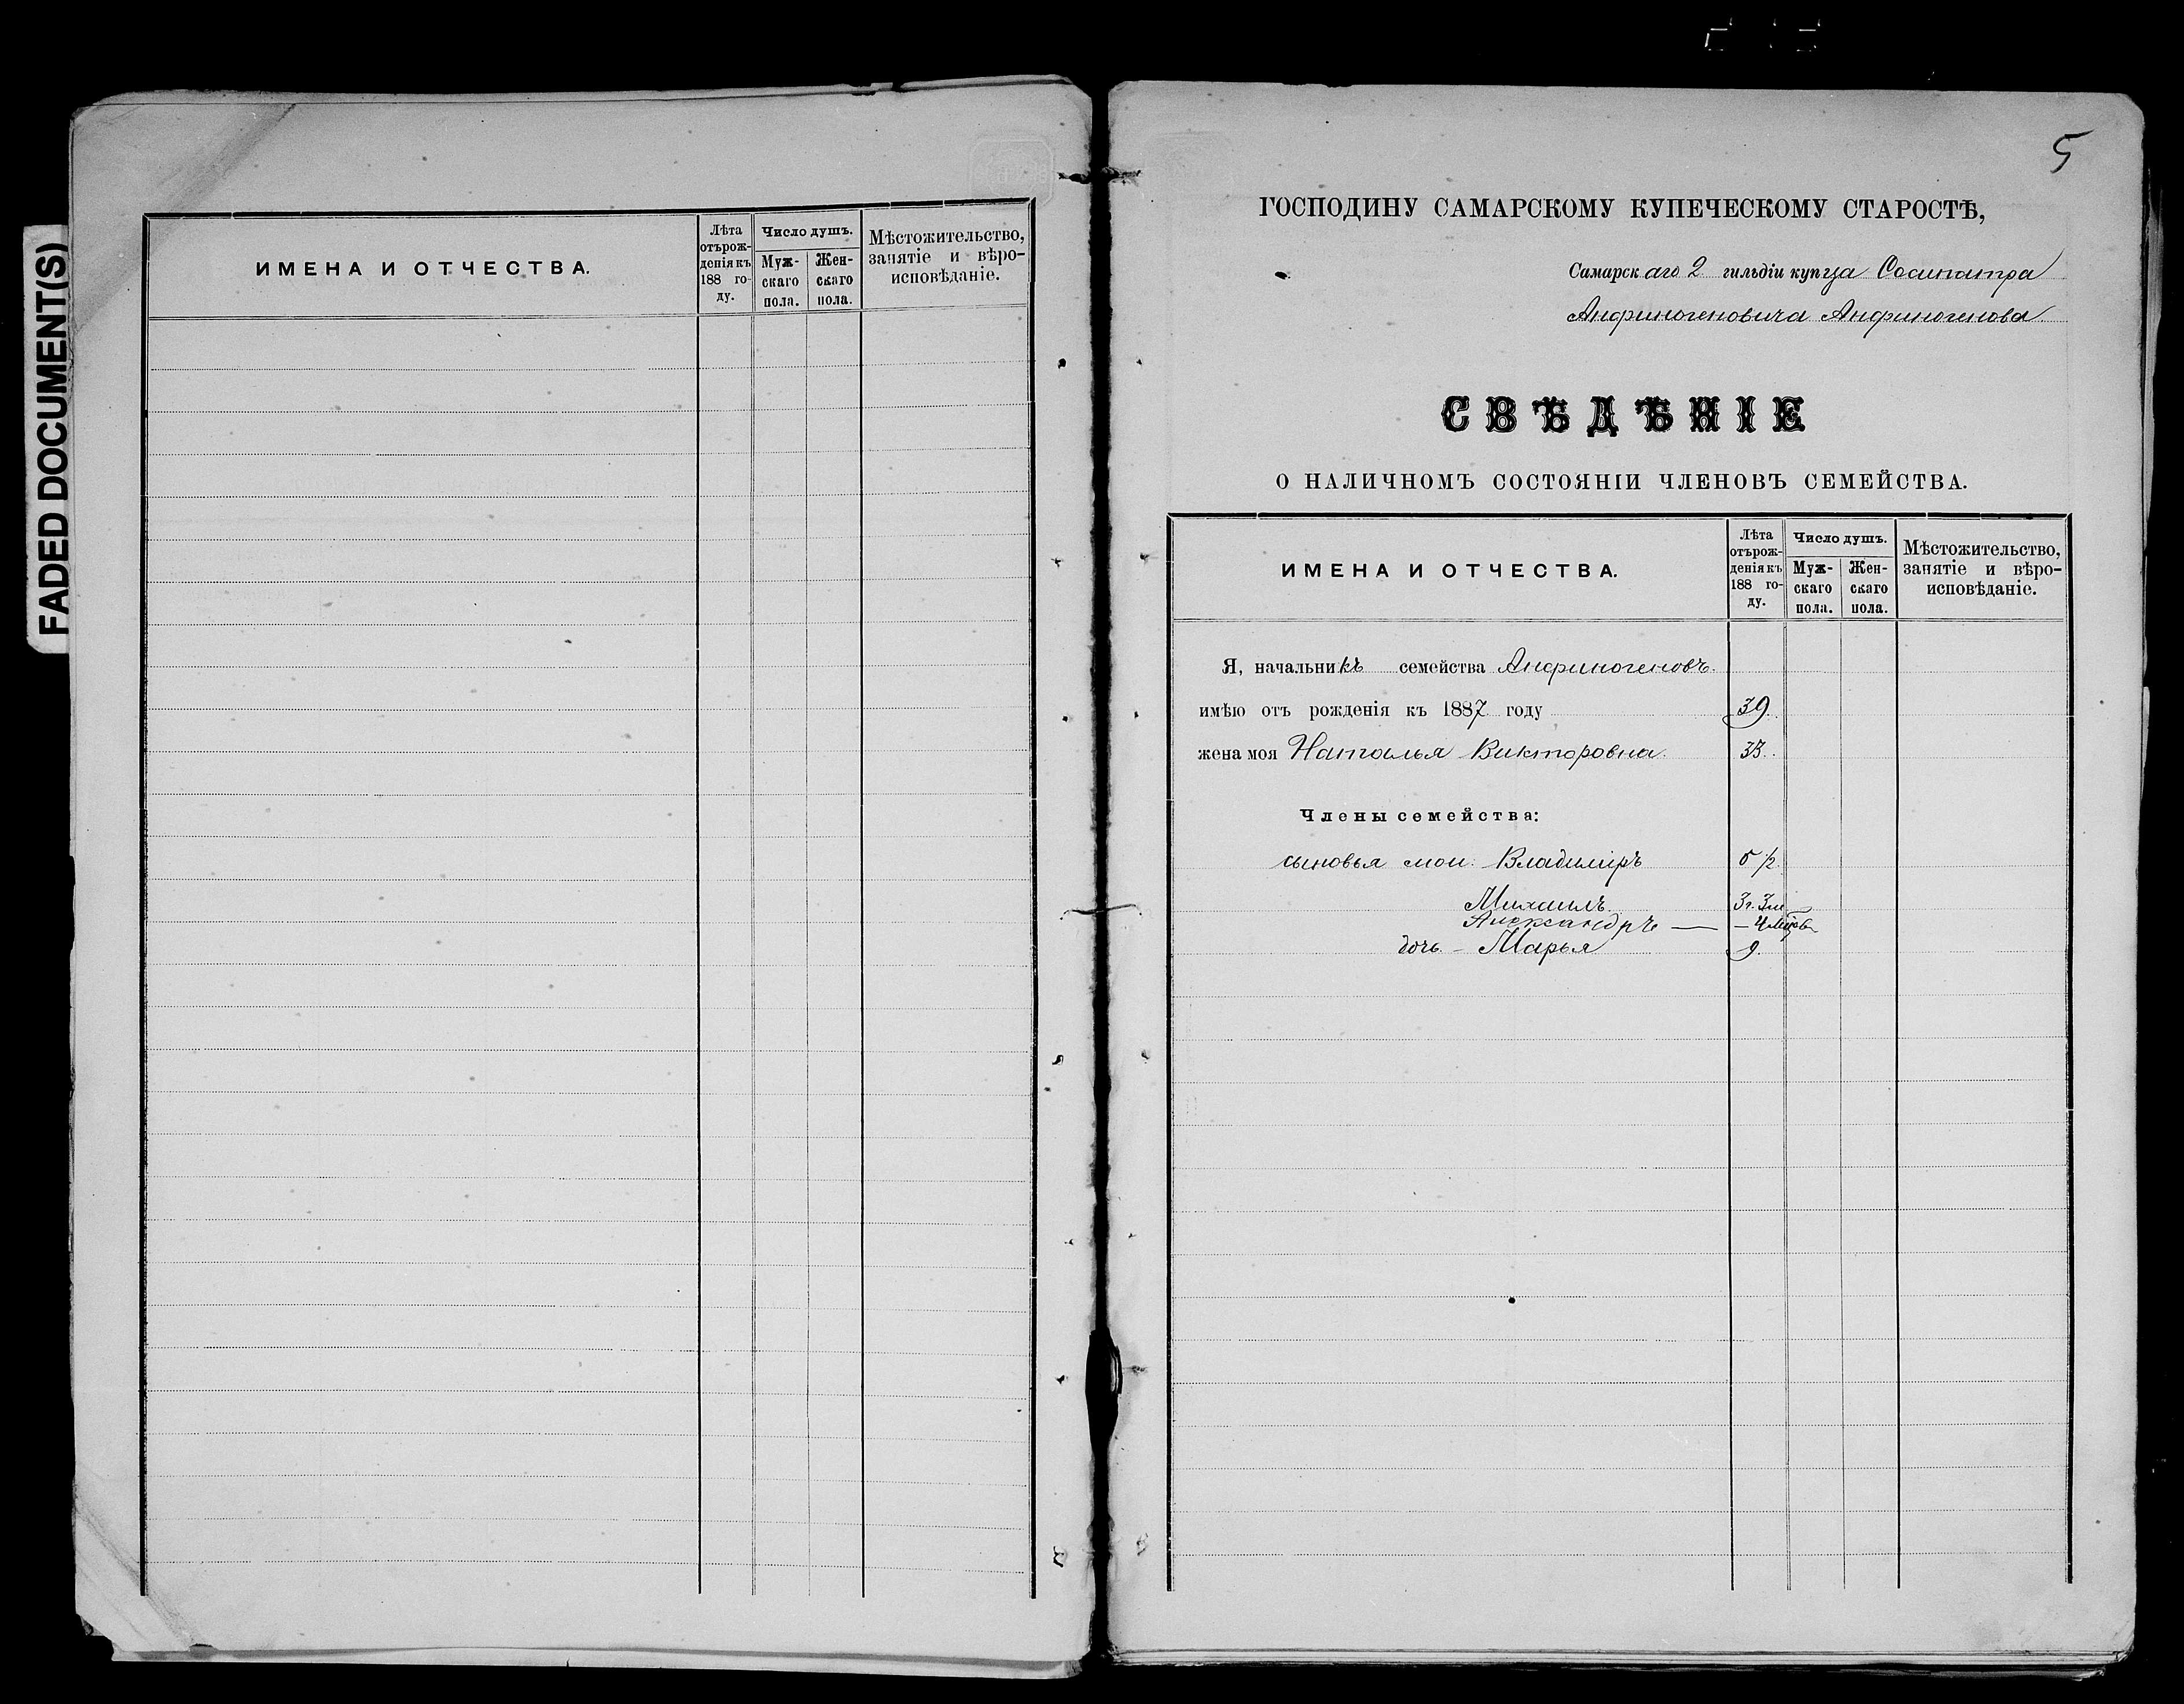 FADED DOCUMENT(S)
ИМЕНА И ОТЧЕСТВА.
Лѣта
отърож-
денія къ
188 го-
ду.
Число душъ.
Муж-
скаго
пола.
Жен-
скаго
пола.
Мѣстожительство,
занятіе и вѣро-
исповѣданіе.
5
ГОСПОДИНУ САМАРСКОМУ КУПЕЧЕСКОМУ СТАРОСТѢ,
Самарскаго 2 гильдіи купца Сосипатра
Анфиногеновича Анфиногенова
СВѢДѢНІЕ
О НАЛИЧНОМЪ СОСТОЯНІИ ЧЛЕНОВЪ СЕМЕЙСТВА.
ИМЕНА И ОТЧЕСТВА.
Лѣта
отърож-
денія къ
188 го-
ду.
Число душъ.
Муж-
скаго
пола.
Жен-
скаго
пола.
Мѣстожительство,
занятіе и вѣро-
исповѣданіе.
Я, начальникъ семейства Анфиногеновъ.
имѣю отъ рожденія къ 1887 году 39.
жена моя Наталья Викторовна. 33.
Члены семейства:
сыновья мои: Владиміръ
Михаилъ 3 г. 3 м
Александръ —
дочь – Марья 9.